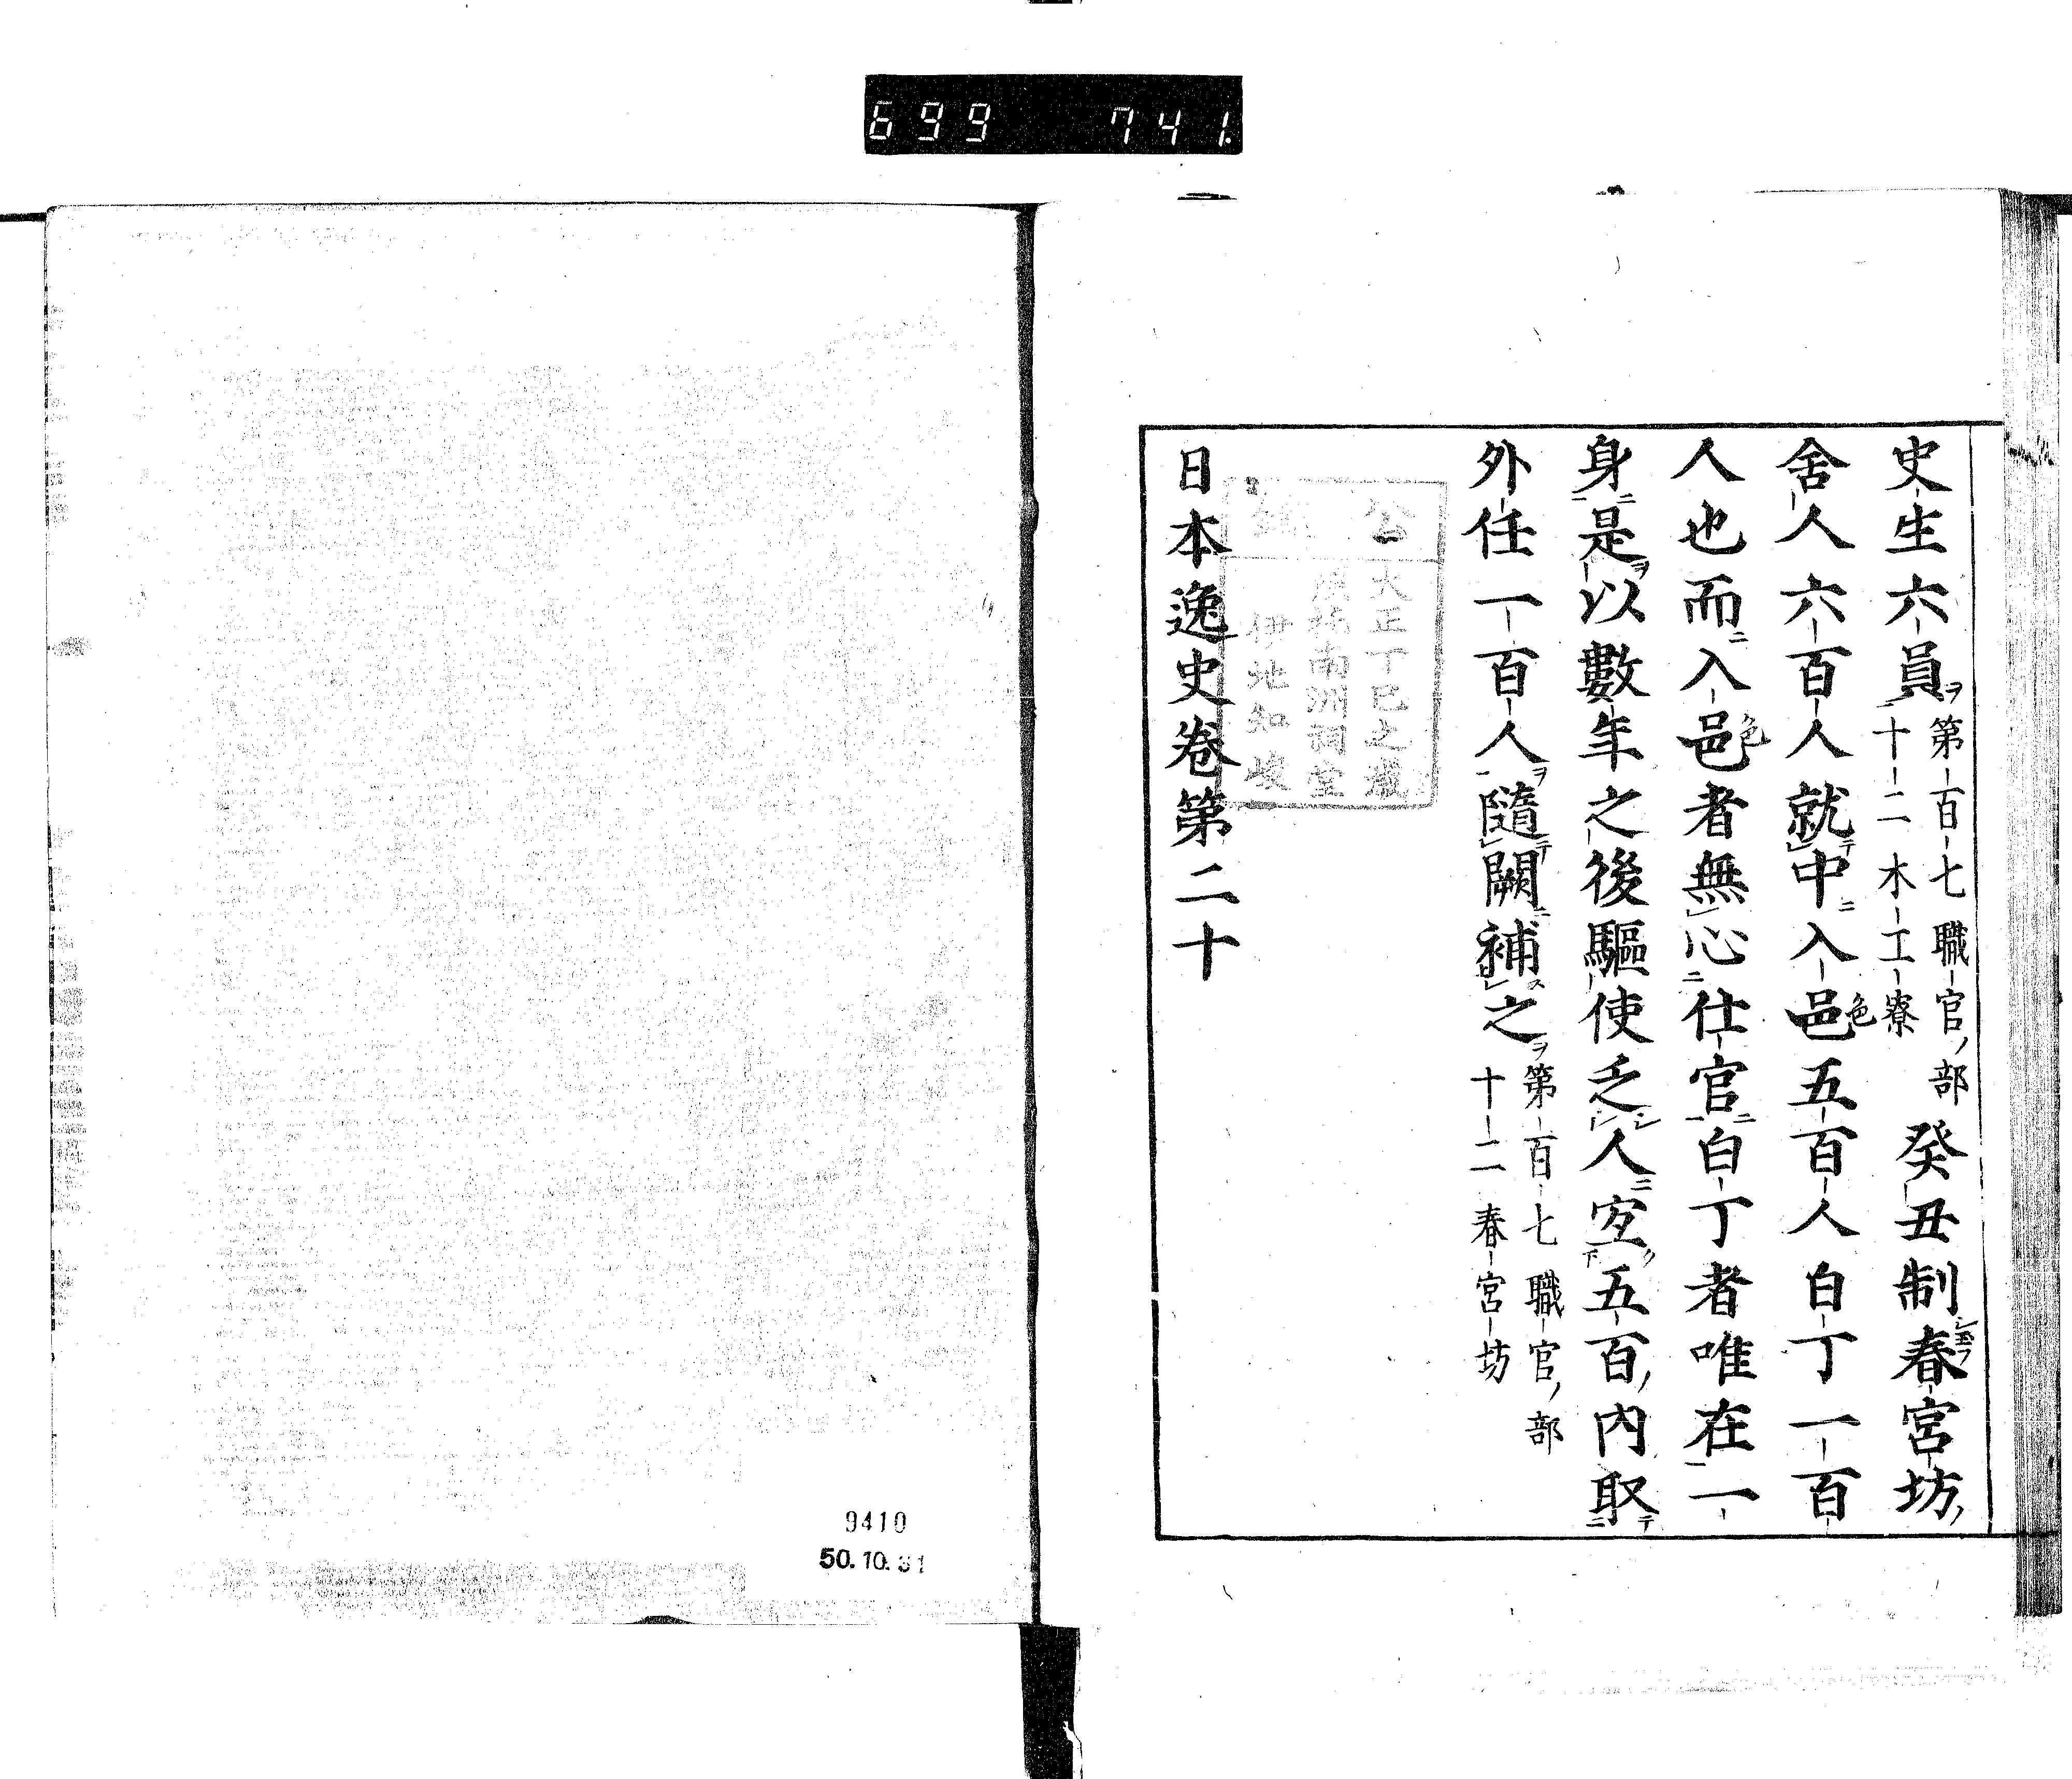 699 741.
史生六員ヲ第百七職官ノ部十二木工寮癸丑制春宮坊ノ
舎人六百人就中入邑色五百人白丁一百
人也而入邑色者無心仕官白丁者唯在一
身是以數年之後驅使乏人宜五百ノ內取
外任一百人隨闕補之第百七職官ノ部十二春宮坊
大正丁巳之歲
南洲祠堂
伊地知峻
日本逸史卷第二十
9410
50.10.31